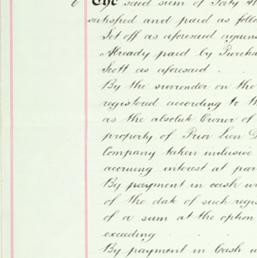 6 The said sum of Forty
satisfied and paid as follows
Set off as aforesaid
Already paid by Purcha
Scott as aforesaid .
By the surrender on the
registered according to th
as the absolute Owner of
property of Prior lien D
Company taken inclusive
accruing interest at par
By payment in cash w
of the date of such regis
of a sum at the option
exceeding .
By payment in Cash w